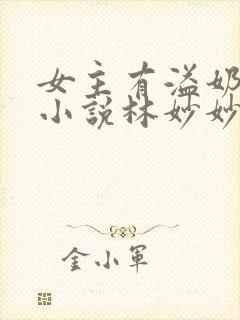 女主有溢奶
小説林妙妙
金小軍